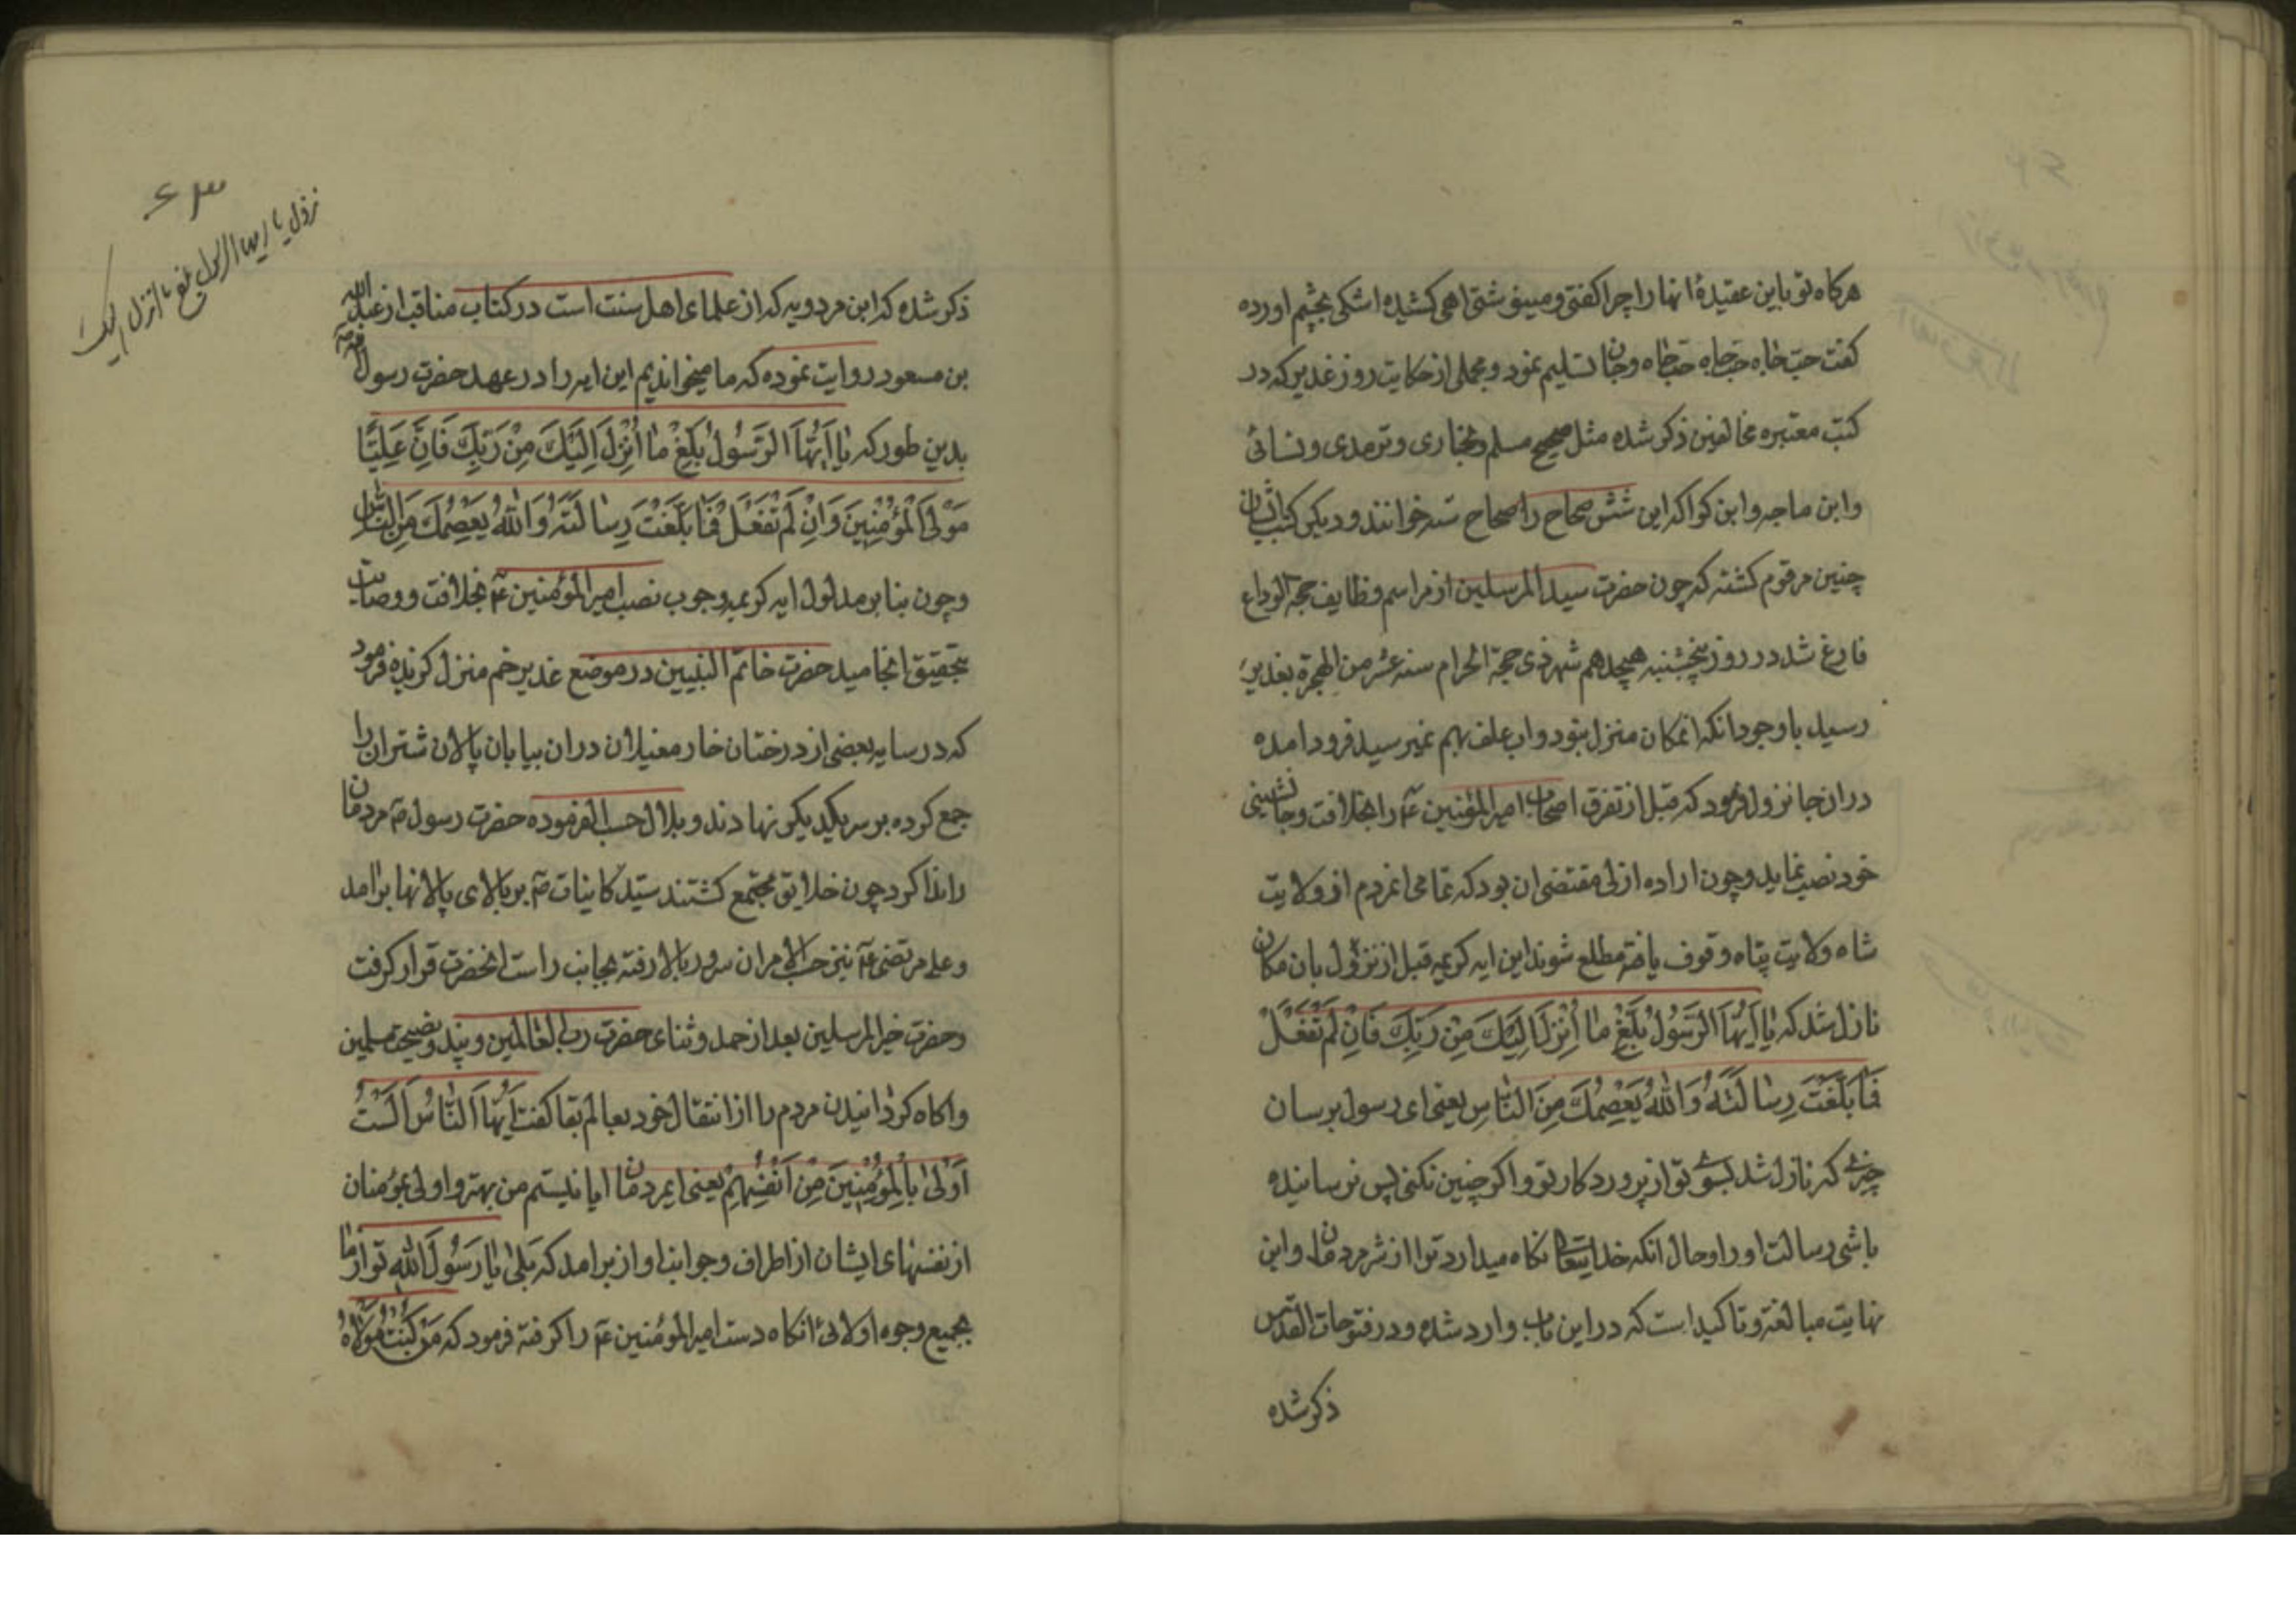 هرکاه تو باین عقیدهٔ انها را چرا کفتی و مینوشتی اهی کشیده اشکی بچشم اورده
کفت حبّ جاه حبّ جاه حبّ جاه و جان تسلیم نمود و مجملی از حکایت روز غدیر که در
کتب معتبره مخالفین ذکر شده مثل صحیح مسلم و بخاری و ترمدی و نسائی
وابن ماجه وابن کوا که این شش صحاح را صحاح سته خوانند و دیکر کتب ایشان
چنین مرقوم کشته که چون حضرت سید المرسلین از مراسم وظایف حجة الوداع
فارغ شد در روز پنچشنبه هیچدهم شهر ذی حجة الحرام سنه عشر من الهجرة بغدیر
رسید با وجود انکه انمکان منزل نبود و اب علف بهم نمیرسید فرود امده
دران جا نزول فرمود که قبل از تفرق اصحاب امیر المؤمنین ع را بخلافت و جانشینی
خود نصب نماید و چون اراده ازلی مقتضی ان بود که تمامی انمردم از ولایت
شاه ولایت پناه وقوف یافته مطلع شوند این ایه کریمه قبل از نزول بان مکان
نازل شد که یا اَیُّهَا الرَّسُولُ بَلِّغْ ما اُنْزِلَ اِلَیْكَ مِنْ رَبِّكَ فَاِنْ لَمْ تَفْعَلْ
فَمَا بَلَّغْتَ رِسالَتَهُ وَاللهُ یَعْصِمُكَ مِنَ النّاسِ یعنی ای رسول برسان
چیزی که نازل شد بسوی تو از پروردکار تو و اکر چنین نکنی پس نرسانیده
باشی رسالت او را و حال انکه خدایتعالی نکاه میدارد ترا از شر مردمان و این
نهایت مبالغه و تاکید است که در این باب وارد شده و در فتوحات القدس
ذکر شده
۶۳
نزول یا ایها الرسول بلغ ما انزل الیك
ذکر شده که ابن مردویه که از علمای اهل سنت است در کتاب مناقب از عبد الله
بن مسعود روایت نموده که ما میخواندیم این ایه را در عهد حضرت رسول ص
بدین طور که یا اَیُّهَا الرَّسُولُ بَلِّغْ ما اُنْزِلَ اِلَیْكَ مِنْ رَبِّكَ فَاِنَّ عَلِیًّا
مَوْلَی الْمُؤْمِنِینَ وَاِنْ لَمْ تَفْعَلْ فَمَا بَلَّغْتَ رِسالَتَهُ وَاللهُ یَعْصِمُكَ مِنَ النّاسِ
و چون بنابر مدلول ایه کریمه وجوب نصب امیر المؤمنین ع بخلافت و وصایت
بتحقیق انجامید حضرت خاتم النبیین در موضع غدیر خم منزل کزیده فرمود
که در سایه بعضی از درختان خار مغیلان دران بیابان پالان شتران را
جمع کرده بر سر یکدیکر نهادند و بلال حسب الفرموده حضرت رسول ص مردمان
را ندا کرد چون خلایق مجتمع کشتند سیّد کاینات ص بر بالای پالانها برامد
و علی مرتضی ع نیز حسب الامر ان سرور بالا رفته بجانب راست انحضرت قرار کرفت
و حضرت خیر المرسلین بعد از حمد و ثنای حضرت رب العالمین و پند و نصیحت مسلمین
و اکاه کردانیدن مردم را از انتقال خود بعالم بقا کفت اَیُّهَا النّاسُ اَلَسْتُ
اَوْلی بِالْمُؤْمِنِینَ مِنْ اَنْفُسِهِمْ یعنی ایمردمان ایا نیستم من بهتر و اولی بمؤمنان
از نفسهای ایشان از اطراف و جوانب اواز برامد که بَلی یا رَسُولَ اللهِ تو از ما
بجمیع وجوه اولائی انکاه دست امیر المؤمنین ع را کرفته فرمود که مَنْ کُنْتُ مَوْلاهُ